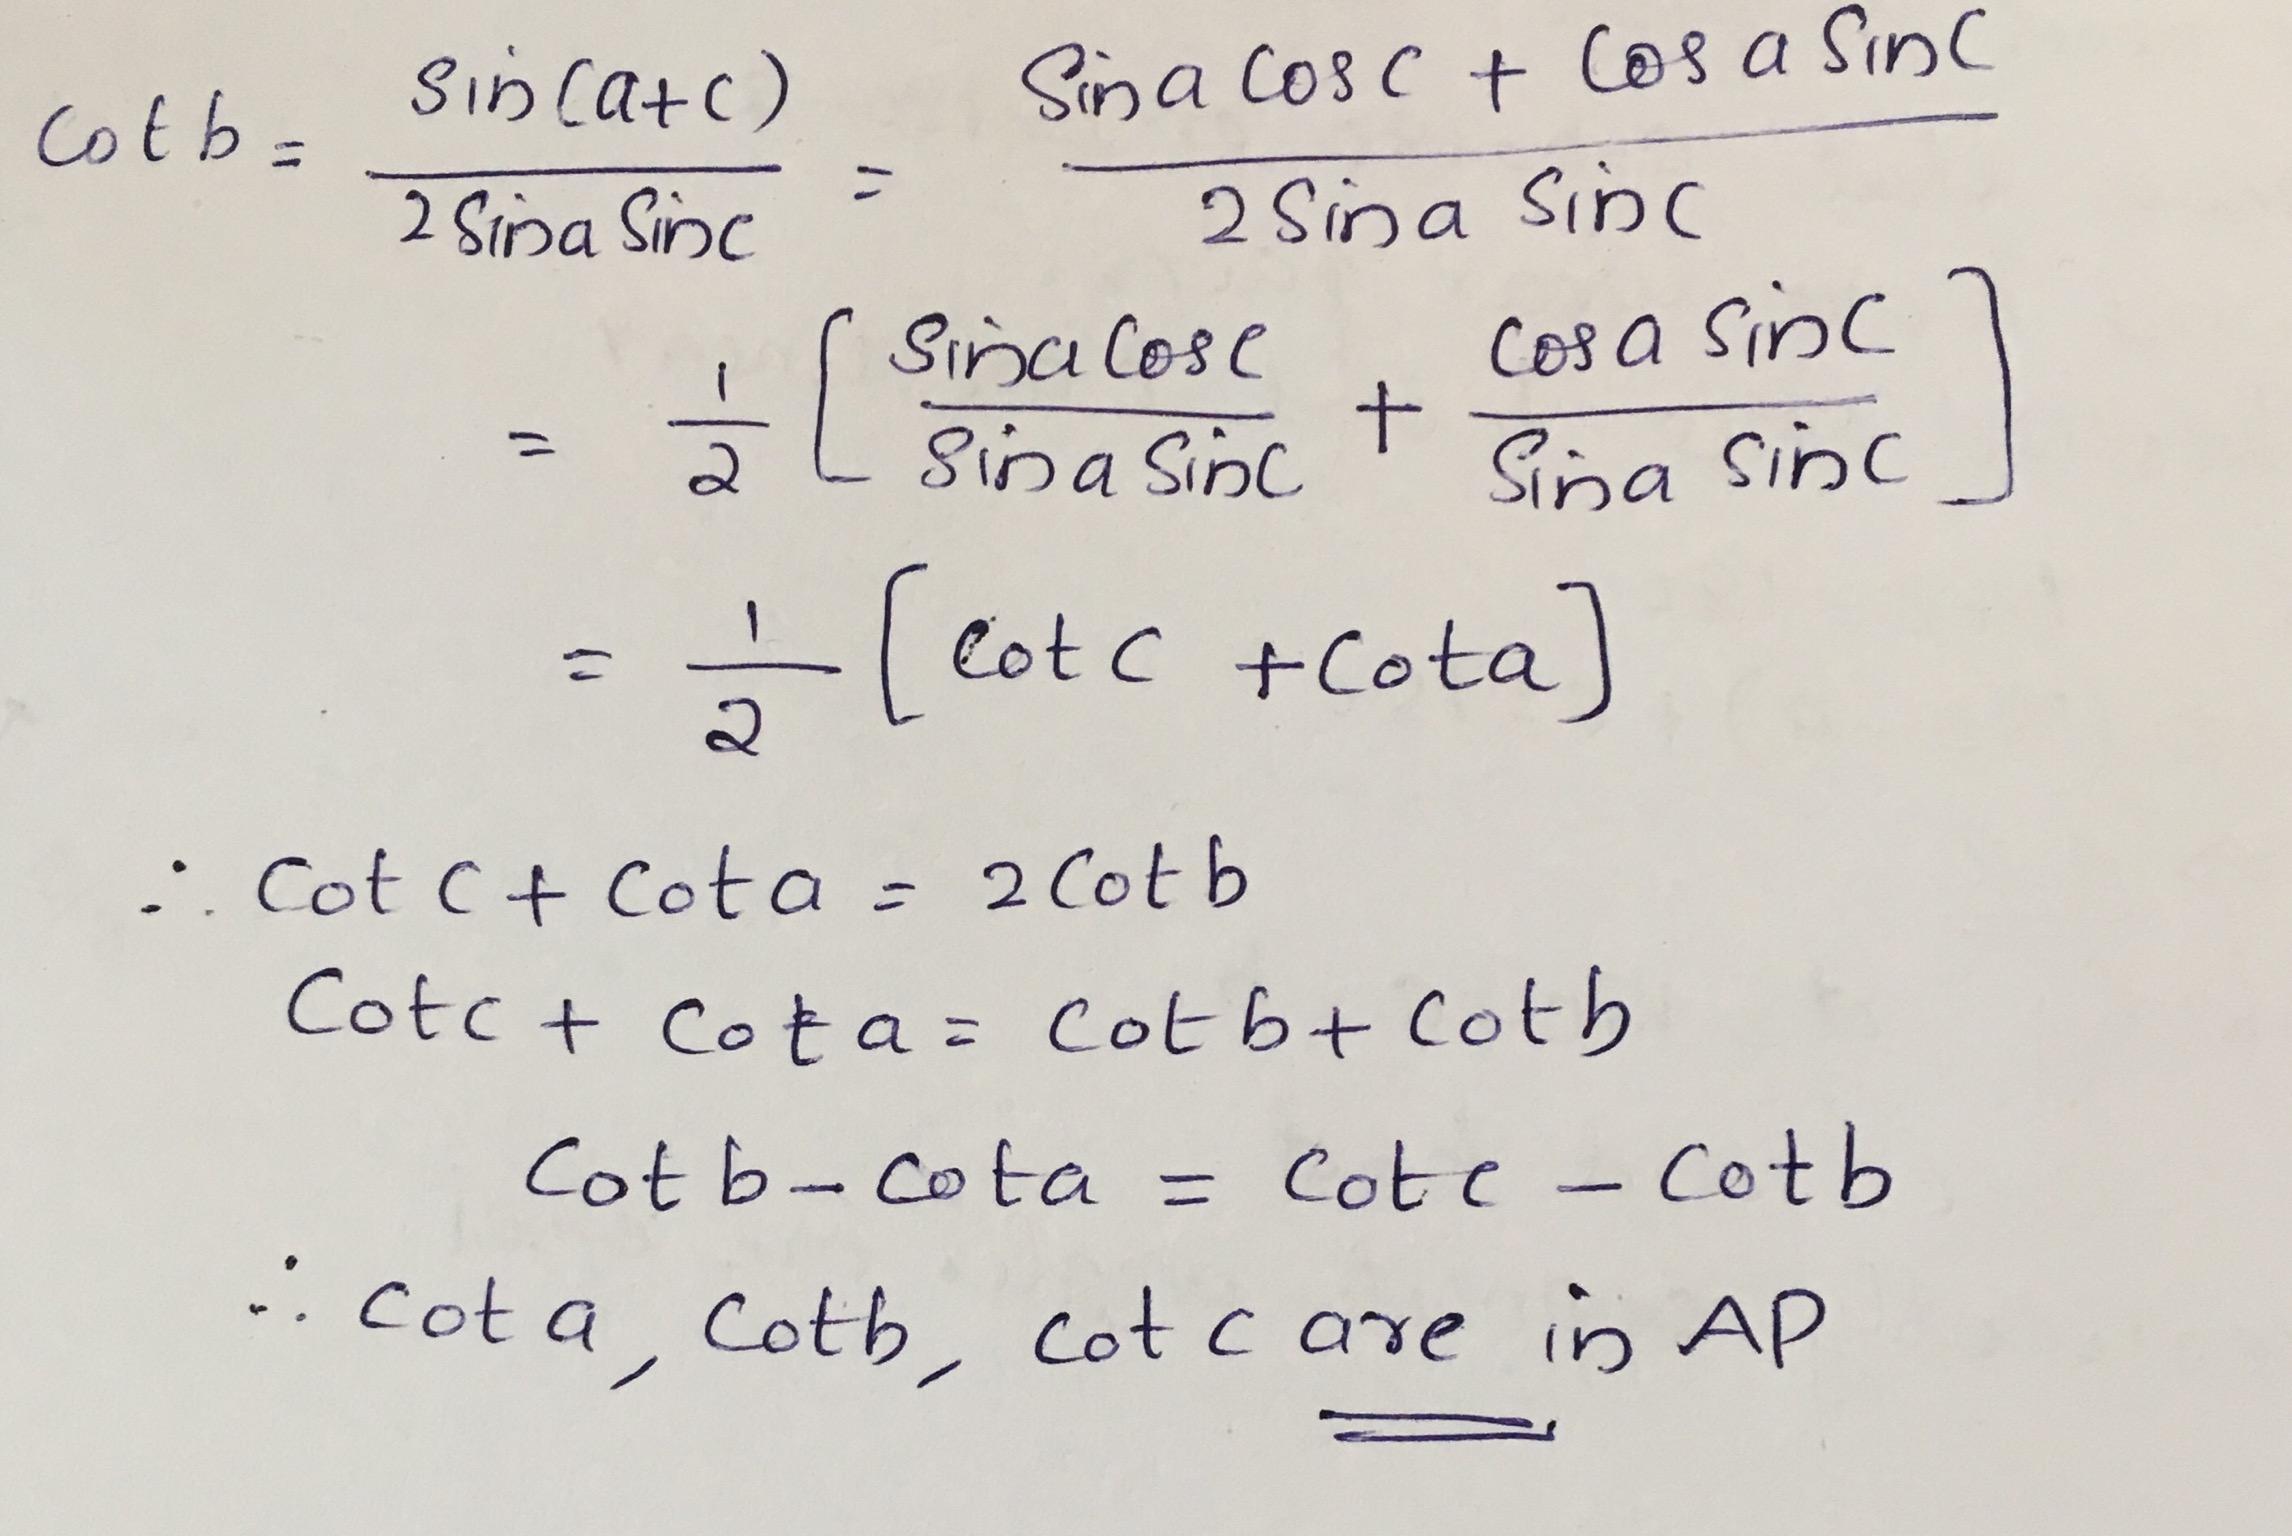 Cot b = sin(a+c) / 2 Sina Sinc = Sina Cosc + Cosa Sinc / 2 Sina Sinc
= 1/2 [ Sina Cosc / Sina Sinc + Cosa Sinc / Sina Sinc ]
= 1/2 [ Cot c + Cot a ]
∴ Cot c + Cot a = 2 Cot b
Cot c + Cot a = Cot b + Cot b
Cot b - Cot a = Cot c - Cot b
∴ Cot a, Cot b, Cot c are in AP